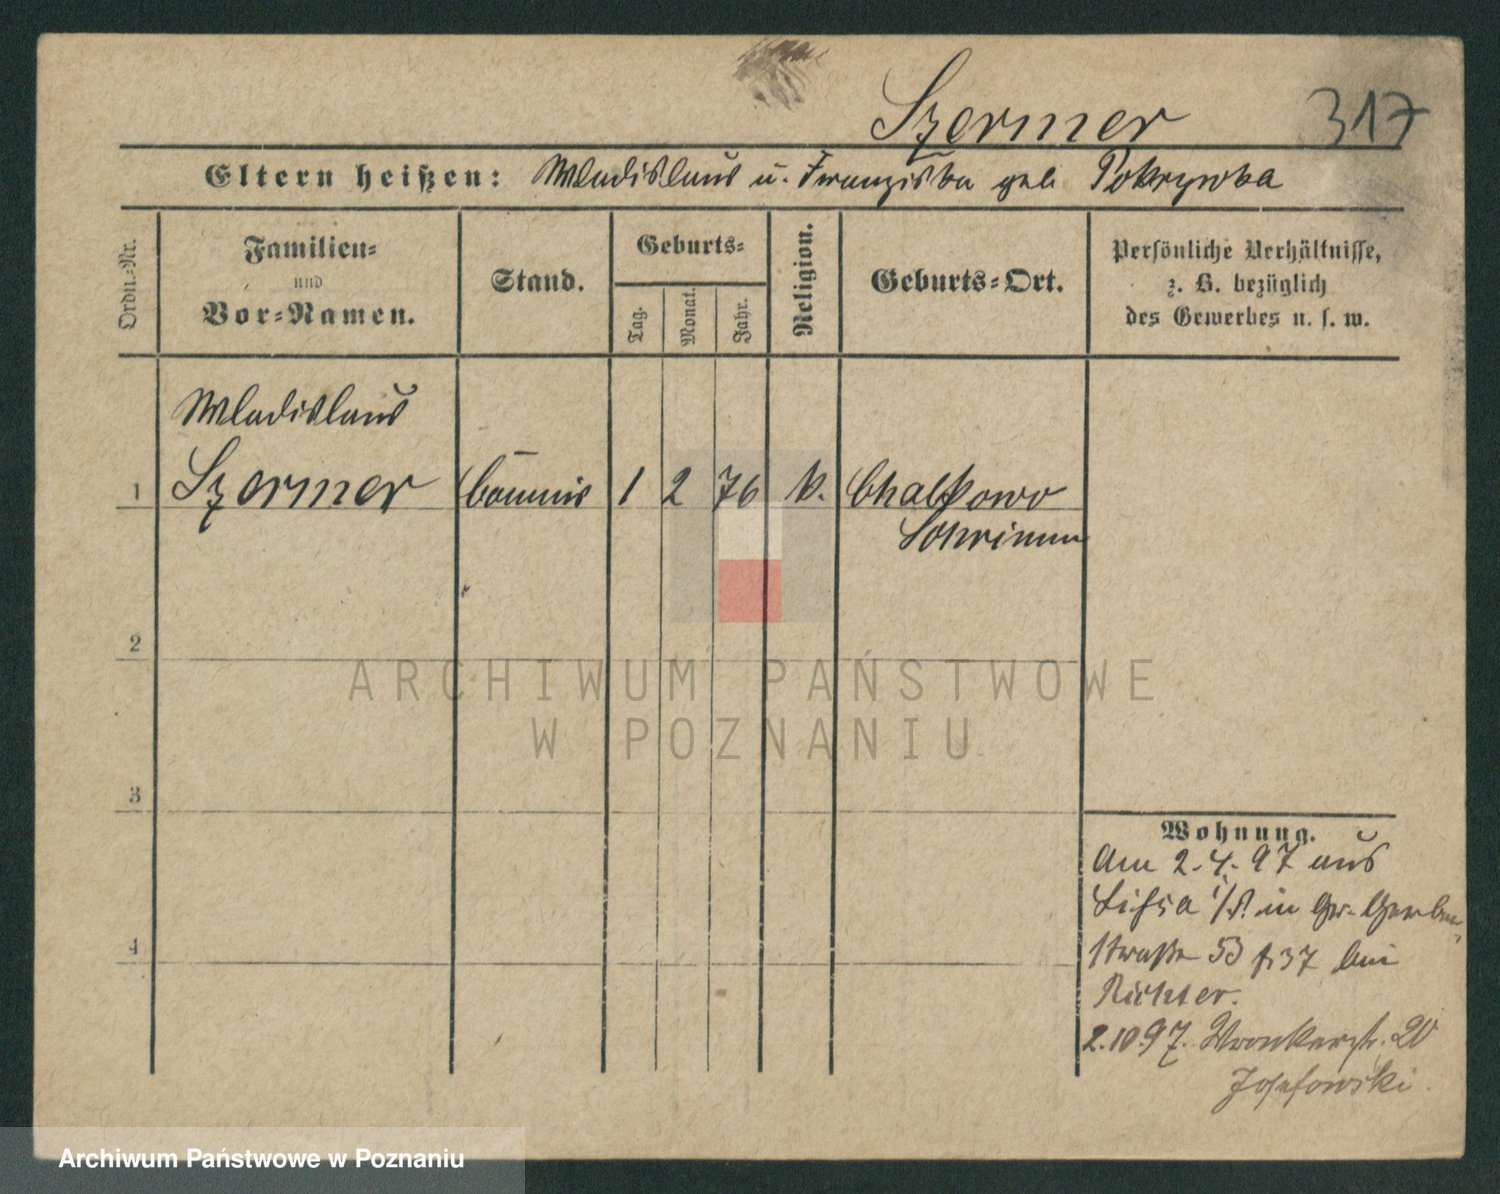 Szermer 317
Eltern heißen: Wladislaus u. Franziska geb Pokrywka
Ordn.-Nr.
Familien-
und
Vor-Namen.
Stand.
Geburts-
Tag.
Monat.
Jahr.
Religion.
Geburts-Ort.
Persönliche Verhältnisse,
z. B. bezüglich
des Gewerbes u. s. w.
Wladislaus
1 Szermer Commis 1 2 76 k. Chalkowo
Schrimm
2
ARCHIWUM PAŃSTWOWE
W POZNANIU
3
Wohnung.
Am 2.4.97 aus
Lissa i/P. in Gr. Gerber
straße 53 bei
Richter.
2.10.97. Wronkerstr. 20
Josefowski
4
Archiwum Państwowe w Poznaniu